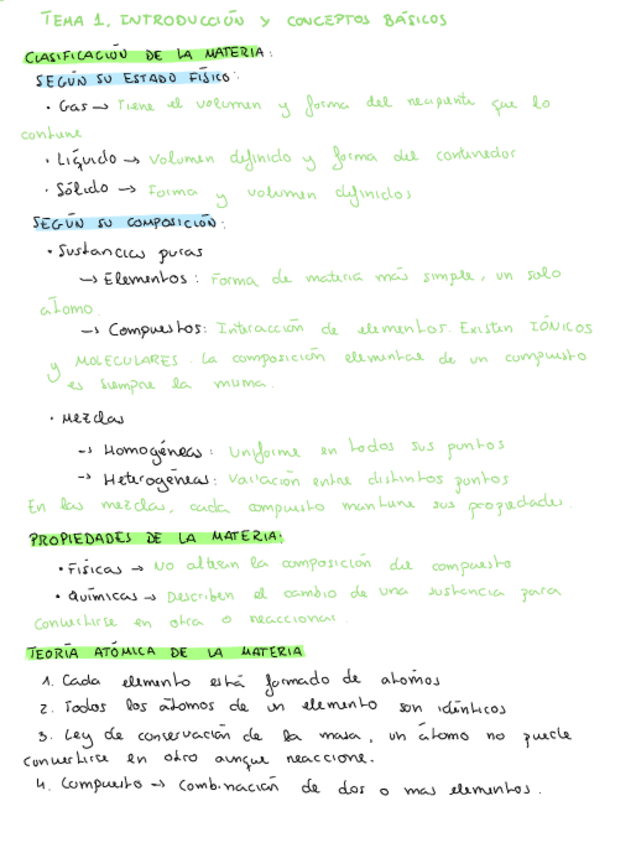 TEMA 1. INTRODUCCIÓN Y CONCEPTOS BÁSICOS
CLASIFICACIÓN DE LA MATERIA:
SEGÚN SU ESTADO FÍSICO:
· Gas → Tiene el volumen y forma del recipiente que lo
contiene
· Líquido → Volumen definido y forma del contenedor
· Sólido → Forma y volumen definidos
SEGÚN SU COMPOSICIÓN:
· Sustancias puras
→ Elementos: Forma de materia más simple, un solo
átomo.
→ Compuestos: Interacción de elementos. Existen IÓNICOS
y MOLECULARES. La composición elemental de un compuesto
es siempre la misma.
· Mezclas
→ Homogéneas: Uniforme en todos sus puntos
→ Heterogéneas: Variación entre distintos puntos
En las mezclas, cada compuesto mantiene sus propiedades.
PROPIEDADES DE LA MATERIA:
· Físicas → No alteran la composición del compuesto
· Químicas → Describen el cambio de una sustancia para
convertirse en otra o reaccionar.
TEORÍA ATÓMICA DE LA MATERIA
1. Cada elemento está formado de átomos
2. Todos los átomos de un elemento son idénticos
3. Ley de conservación de la masa, un átomo no puede
convertirse en otro aunque reaccione.
4. Compuesto → Combinación de dos o mas elementos.